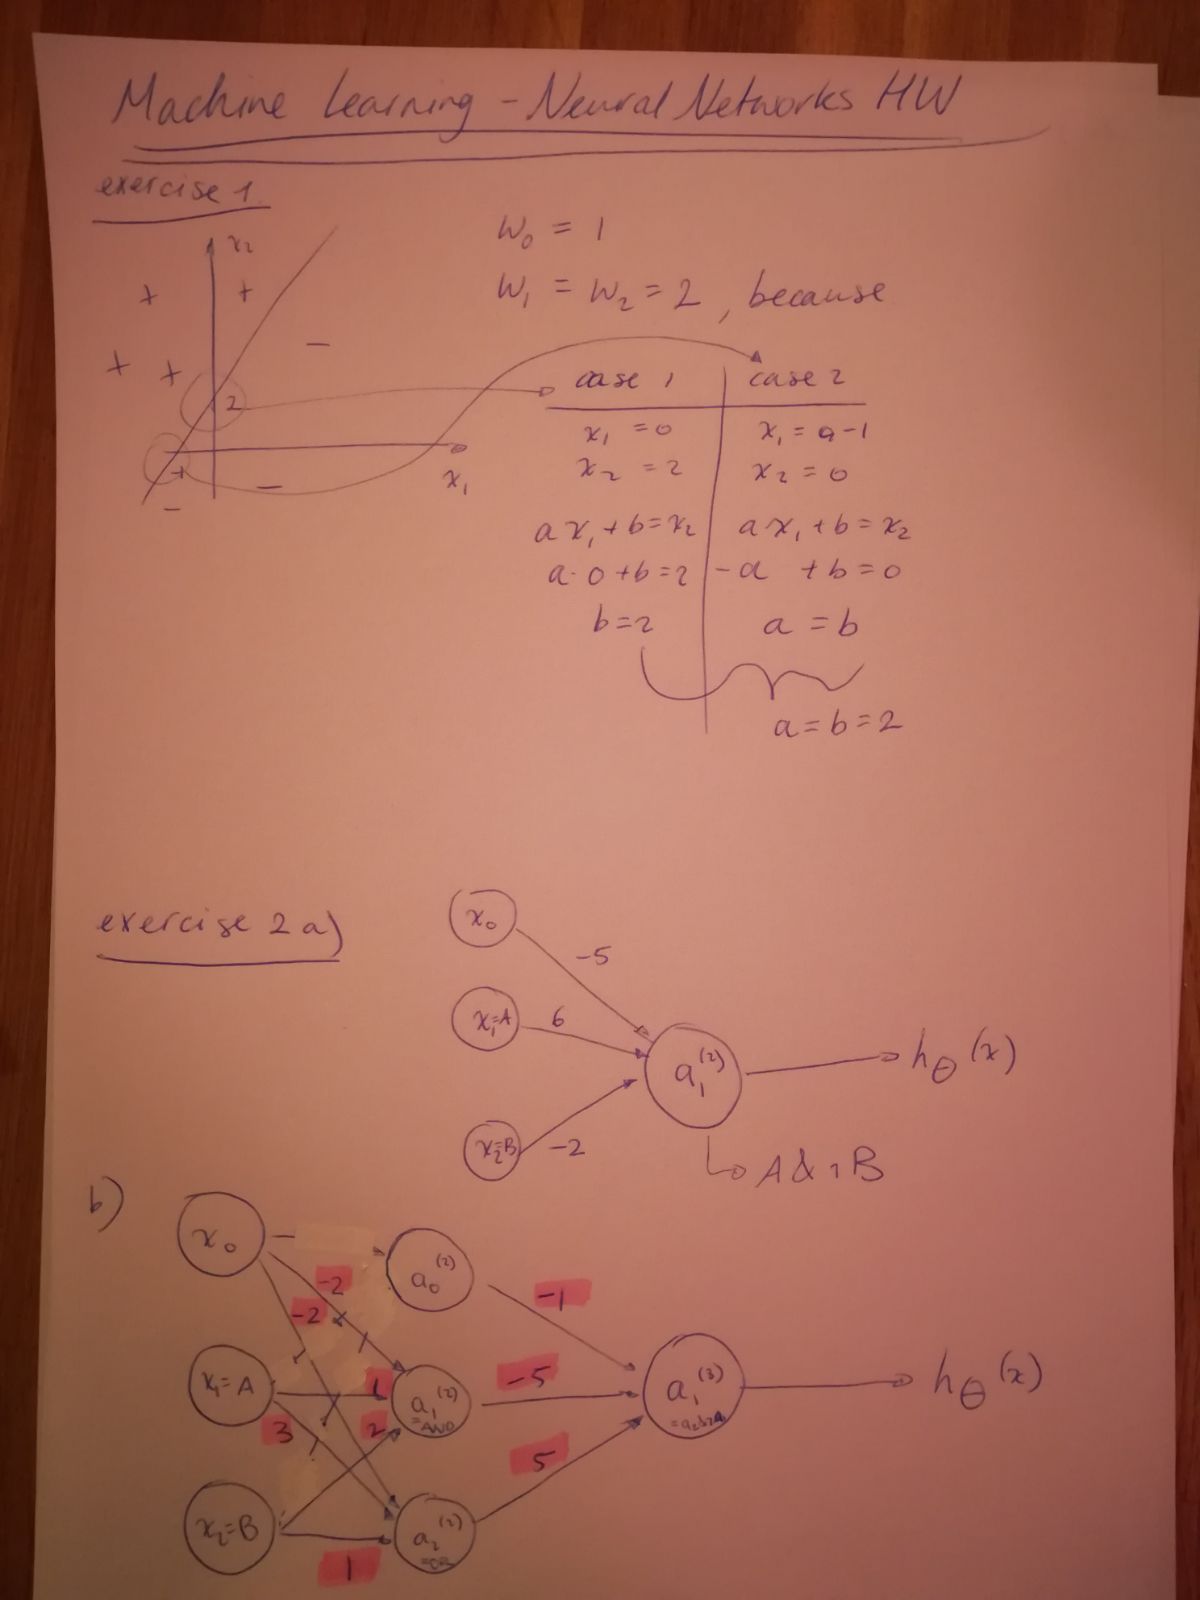 Machine Learning - Neural Networks HW
exercise 1.
x₂
+ + + + - - -
2
-1
x₁
w₀ = 1
w₁ = w₂ = 2, because
case 1 case 2
x₁ = 0 x₁ = a-1
x₂ = 2 x₂ = 0
ax₁ + b = x₂ ax₁ + b = x₂
a·0 + b = 2 -a + b = 0
b = 2 a = b
a = b = 2
exercise 2 a)
x₀
-5
x₁=A
6
a₁⁽²⁾
hθ(x)
x₂=B
-2
A & ¬B
b)
x₀
a₀⁽²⁾
-2
-2
-1
x₁=A
1
a₁⁽²⁾
=AND
-5
a₁⁽³⁾
hθ(x)
3
2
5
x₂=B
a₂⁽²⁾
=OR
1